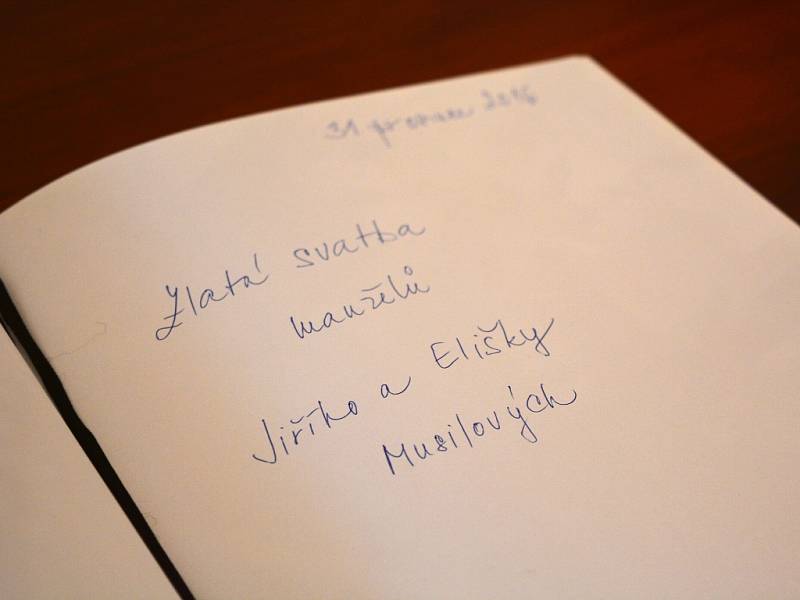 31 prosinec 2016
Zlatá svatba
manželů
Jiřího a Elišky
Musilových